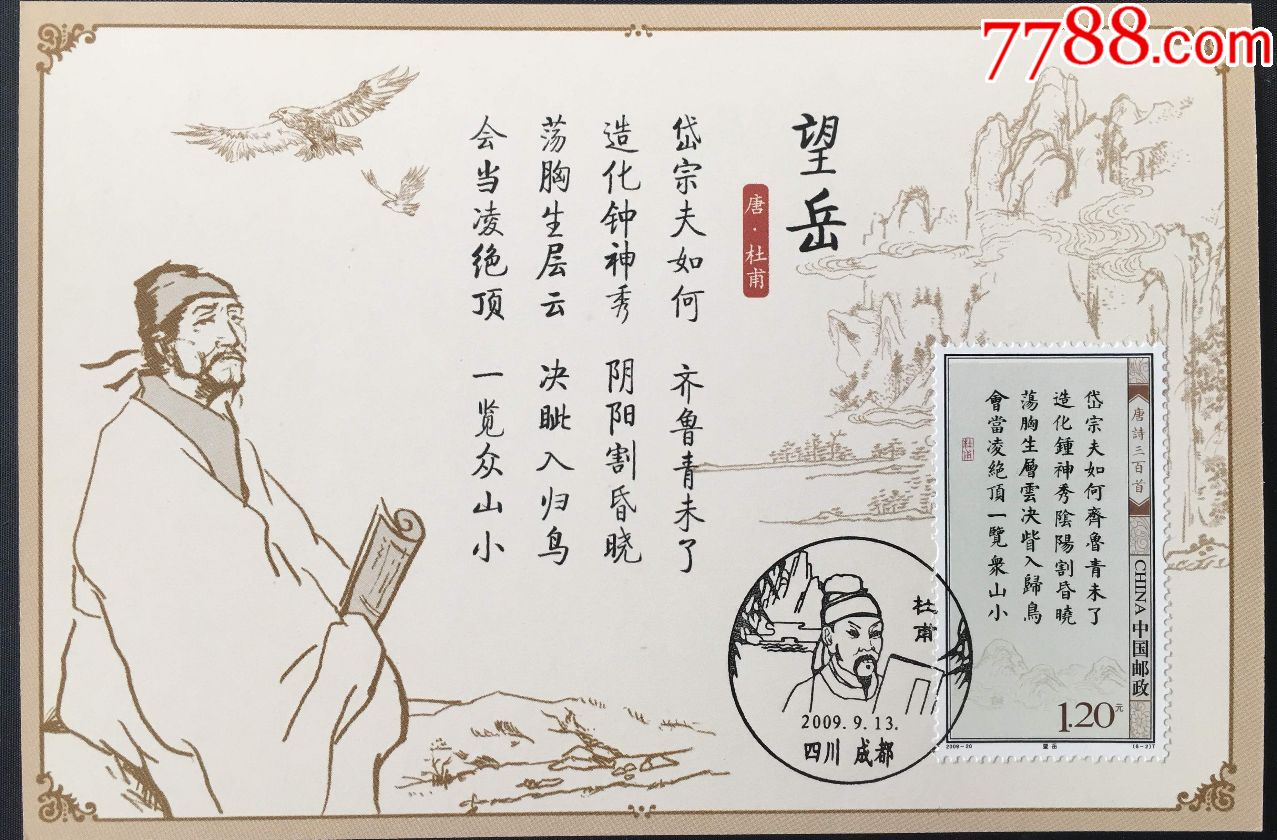 7788.com
望岳
唐·杜甫
岱宗夫如何 齐鲁青未了
造化钟神秀 阴阳割昏晓
荡胸生层云 决眦入归鸟
会当凌绝顶 一览众山小
唐詩三百首
CHINA 中国邮政
岱宗夫如何齊魯青未了
造化鍾神秀陰陽割昏曉
蕩胸生層雲决眥入歸鳥
會當凌絶頂一覽衆山小
1.20元
2009-20
望岳
(6-2)T
杜甫
2009.9.13.
四川 成都